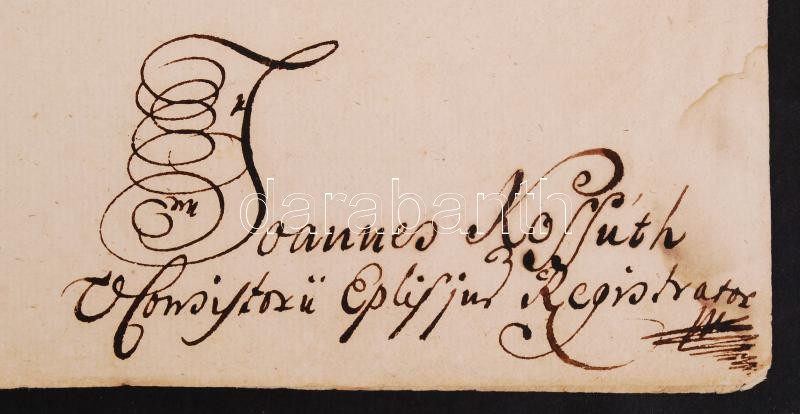 Joannes Kossúth
V Consistorii Eplis jur Registrator
darabanth